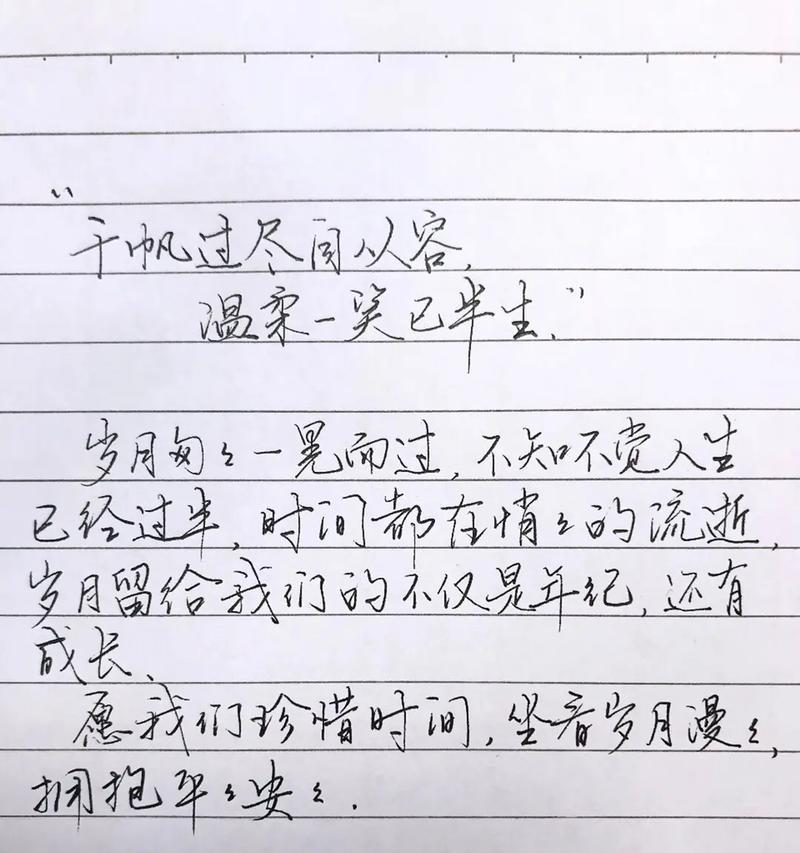 “千帆过尽间从容,
温柔一笑已半生.”
岁月匆々一晃而过,不知不觉人生
已经过半,时间都在悄々的流逝,
岁月留给我们的不仅是年纪,还有
成长.
愿我们珍惜时间,坐看岁月漫々,
拥抱平々安々.